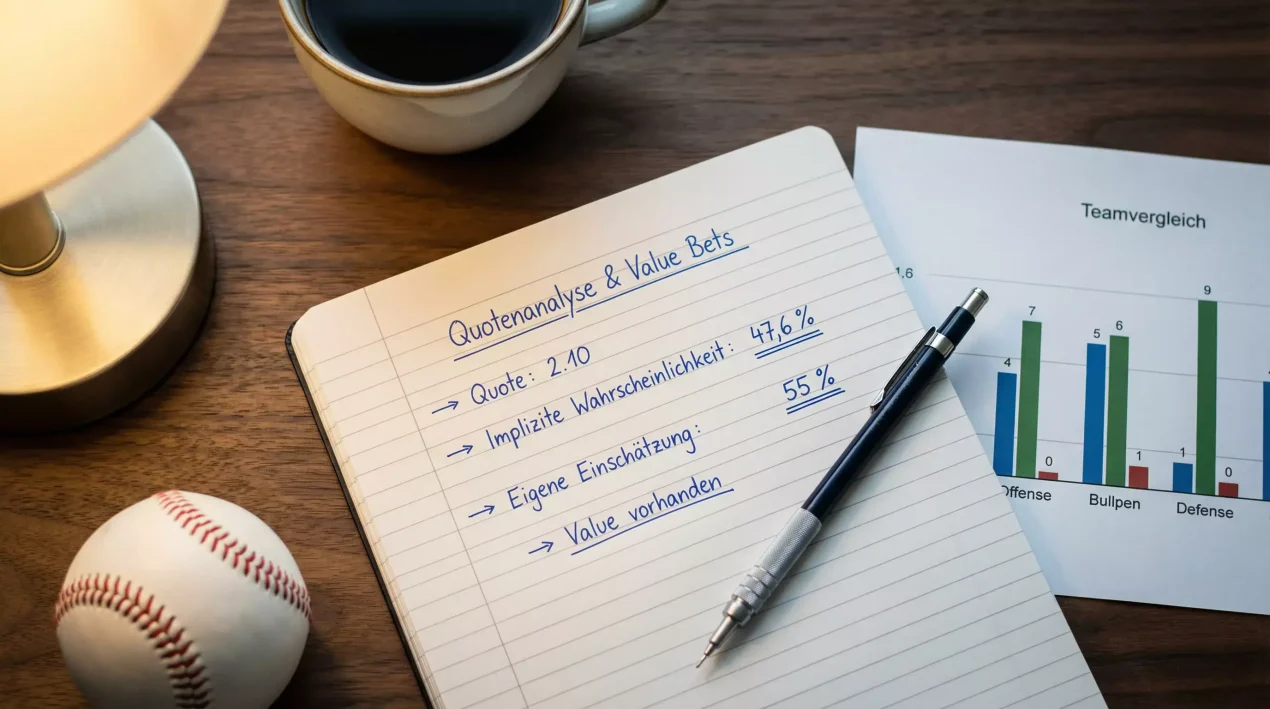 Quotenanalyse & Value Bets
→ Quote: 2.10
→ Implizite Wahrscheinlichkeit: 47,6%
→ Eigene Einschätzung: 55%
→ Value vorhanden
Teamvergleich
1.6
4 7 0 5 6 1 1 9 0
Offense Bullpen Defense